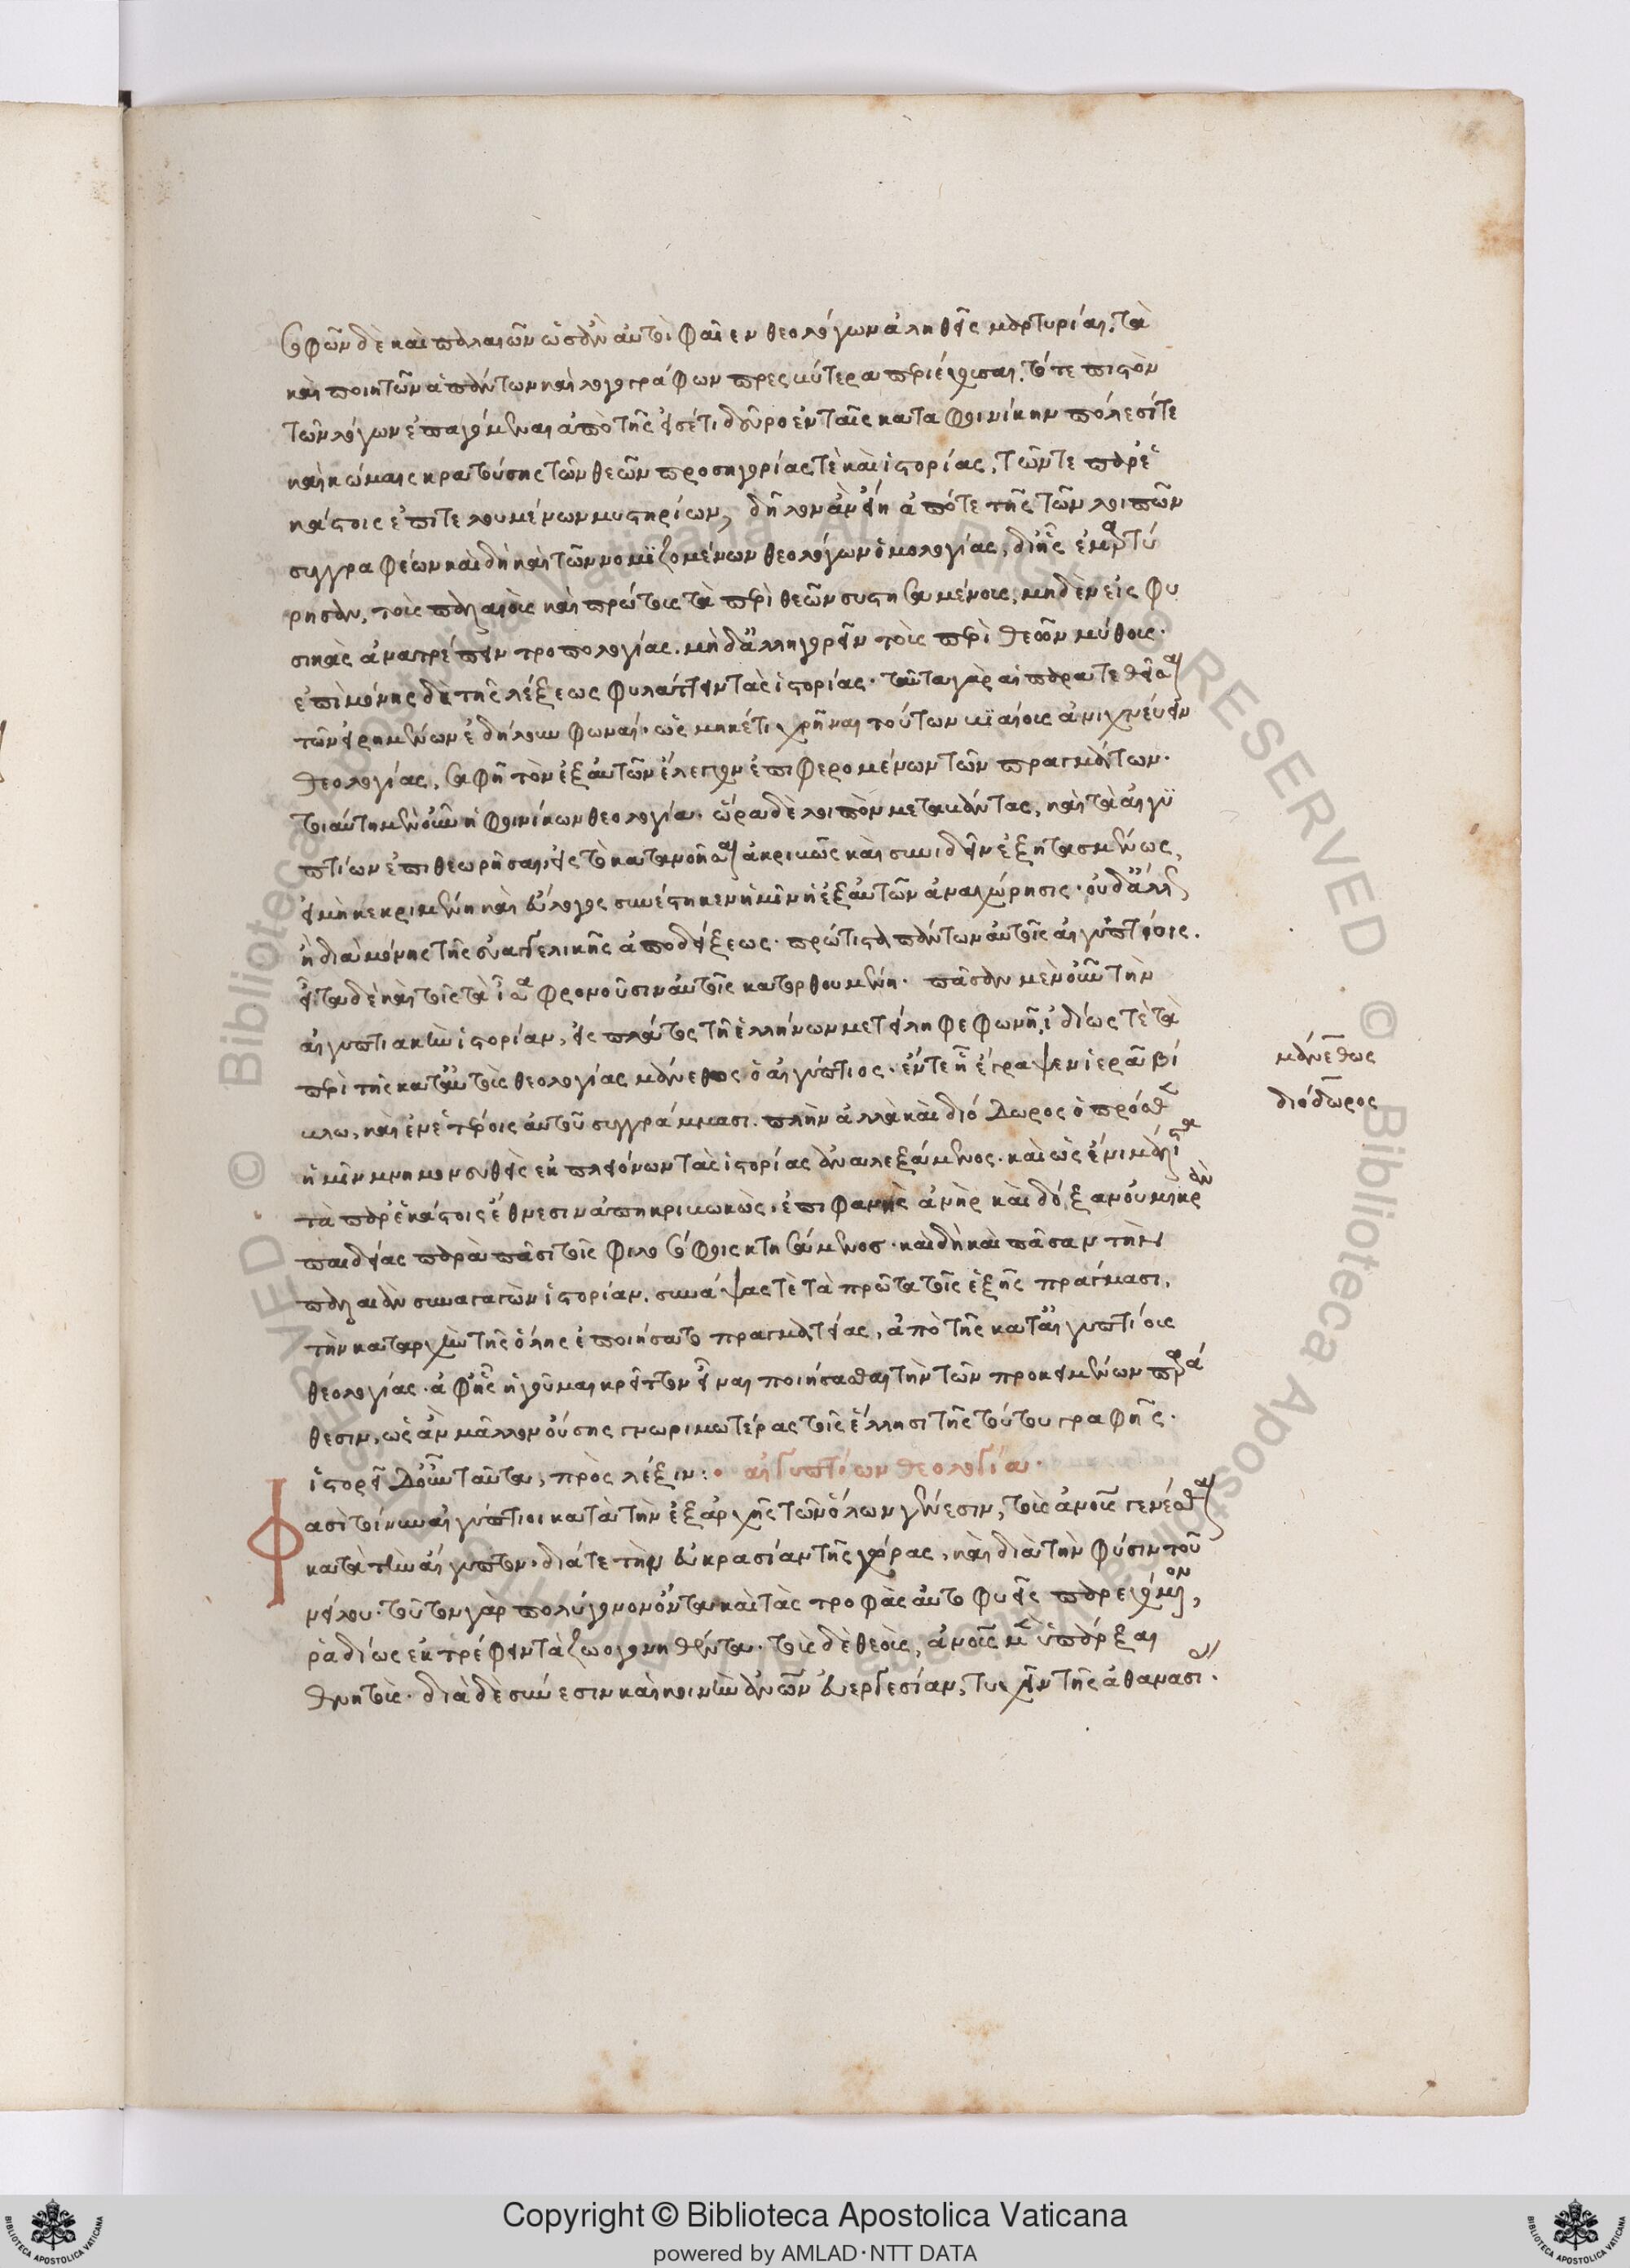 σοφῶν δὲ καὶ παλαιῶν ὡς ἂν αὐτοὶ φαῖεν θεολόγων ἀληθεῖς μαρτυρίαι, τὰ
καὶ ποιητῶν ἁπάντων καὶ λογογράφων πρεσβύτερα περιέχουσαι, τό τε πιστὸν
τῶν λόγων ἐπαγόμεναι ἀπὸ τῆς εἰσέτι δεῦρο ἐν ταῖς κατα φοινίκην πόλεσί τε
καὶ κώμαις κρατούσης τῶν θεῶν προσηγορίας τὲ καὶ ἱστορίας, τῶν τε παρ' ἑ
κάστοις ἐπιτελουμένων μυστηρίων, δῆλον ἂν εἴη ἀπό τε τῆς τῶν λοιπῶν
συγγραφέων καὶ δὴ καὶ τῶν νομϊζομένων θεολόγων ὁμολογίας, δι' ἧς ἐμαρτύ
ρησαν, τοῖς παλαιοῖς καὶ πρώτοις τὰ περὶ θεῶν συστησαμένοις, μηδὲν εἰς φυ
σικὰς ἀνατρέπειν τροπολογίας. μὴ δ' ἀλληγορεῖν τοῖς περὶ θεῶν μύθοις.
ἐπὶ μόνης δὲ τῆς λέξεως φυλάττειν τὰς ἱστορίας. ταῦτα γὰρ αἱ παρατεθεῖσαι
τῶν εἰρημένων ἐδήλουν φωναί. ὡς μηκέτι χρῆναι τούτων βϊαίους ἀνιχνεύειν
θεολογίας, σαφῆ τὸν ἐξ αὐτῶν ἔλεγχον ἐπιφερομένων τῶν πραγμάτων.
τοιαύτη μὲν οὖν ἡ φοινίκων θεολογία. ὥρα δὲ λοιπὸν μεταβάντας, καὶ τὰ αἰγυ
πτίων ἐπιθεωρῆσαι, εἰς τὸ κατανοῆσαι ἀκριβῶς καὶ συνιδεῖν ἐξητασμένως,
εἰ μὴ κεκριμένη καὶ εὔλογος συνέστηκεν ἡμῖν ἡ ἐξ αὐτῶν ἀναχώρησις. οὐδ' ἄλλως
ἢ διὰ μόνης τῆς εὐαγγελικῆς ἀποδείξεως. πρώτιστα πάντων αὐτοῖς αἰγυπτίοις.
εἶτα δὲ καὶ τοῖς τὰ ἶσα φρονοῦσιν αὐτοῖς κατορθουμένη. πᾶσαν μὲν οὖν τὴν
αἰγυπτιακὴν ἱστορίαν, εἰς πλάτος τῆ ἑλλήνων μετείληφε φωνῆ, ἰδίως τὲ τὰ
περὶ τῆς κατ' αὐτοὺς θεολογίας μανεθως ὁ αἰγύπτιος. ἔν τε ἧ ἔγραψεν ἱερᾶ βί
βλω, καὶ ἐν ἑτέροις αὐτοῦ συγγράμμασι. πλὴν ἀλλὰ καὶ διόδωρος ὁ πρόσθεν
ἡμῖν μνημονευθεὶς ἐκ πλειόνων τὰς ἱστορίας ἀναλεξάμενος. καὶ ὡς ἔνι μάλιστα
τὰ παρ' ἑκάστοις ἔθνεσιν ἀπηκριβωκὼς. ἐπιφανὴς ἀνὴρ καὶ δόξαν οὐ μικρὰν
παιδείας παρὰ πᾶσι τοῖς φιλολόγοις κτησάμενος. καὶ δὴ καὶ πᾶσαν τὴν
παλαιὰν συναγαγὼν ἱστορίαν. συνάψας τὲ τὰ πρῶτα τοῖς ἑξῆς πράγμασι,
τὴν καταρχὴν τῆς ὅλης ἐποιήσατο πραγματείας, ἀπὸ τῆς κατ' αἰγυπτίους
θεολογίας. ἀφ' ἧς ἡγοῦμαι κρεῖττον εἶναι ποιήσασθαι τὴν τῶν προκειμένων παρά
θεσιν, ὡς ἂν μᾶλλον οὔσης γνωριμωτέρας τοῖς ἕλλησι τῆς τούτου γραφῆς.
ἱστορεῖ δ' οὖν ταῦτα, πρὸς λέξιν: αἰγυπτίων θεολογία.
Φασὶ τοίνυν αἰγύπτιοι κατὰ τὴν ἐξ ἀρχῆς τῶν ὅλων γένεσιν, τοὺς ἀνους γενέσθαι
κατὰ τὴν αἴγυπτον. διά τε τὴν εὐκρασίαν τῆς χώρας, καὶ διὰ τὴν φύσιν τοῦ
νείλου. τοῦτον γὰρ πολύγονον ὄντα καὶ τὰς τροφὰς αὐτοφυεῖς παρεχόμενον,
ῥαδίως ἐκτρέφειν τὰ ζωογονηθέντα. τοὺς δὲ θεοὺς, ἀνους μὲν ὑπάρξαι
θνητοὺς. διὰ δὲ σύνεσιν καὶ κοινὴν ἀνων εὐεργεσίαν, τυχεῖν τῆς ἀθανασίας.
μανεθως
διόδωρος
Copyright © Biblioteca Apostolica Vaticana
powered by AMLAD·NTT DATA